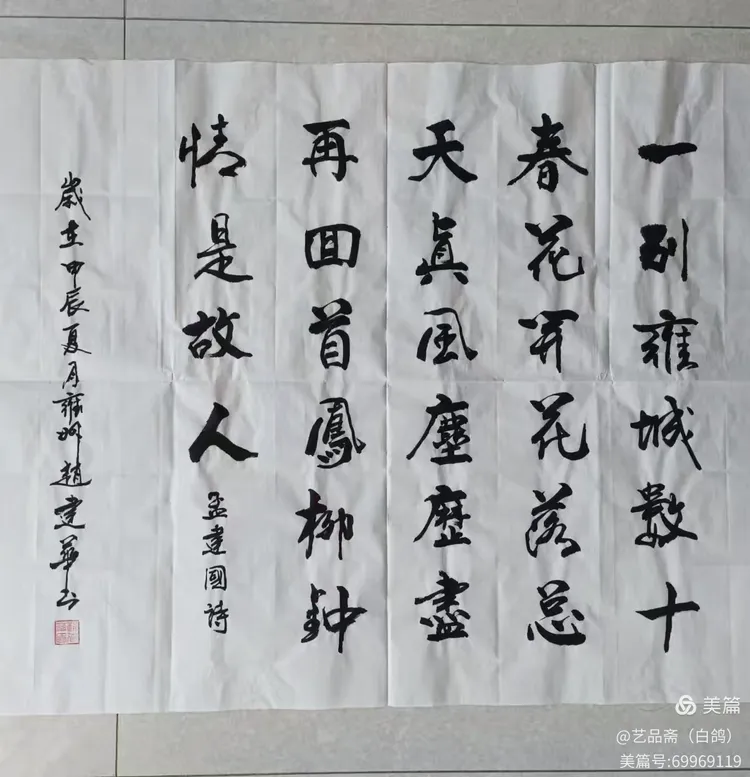 一别雍城數十
春花开花落总
天真風塵歷盡
再回首鳳柳钟
情是故人
孟建國詩
歲在甲辰夏月雍州趙建華书
美篇
@艺品斋（白鸽）
美篇号:69969119